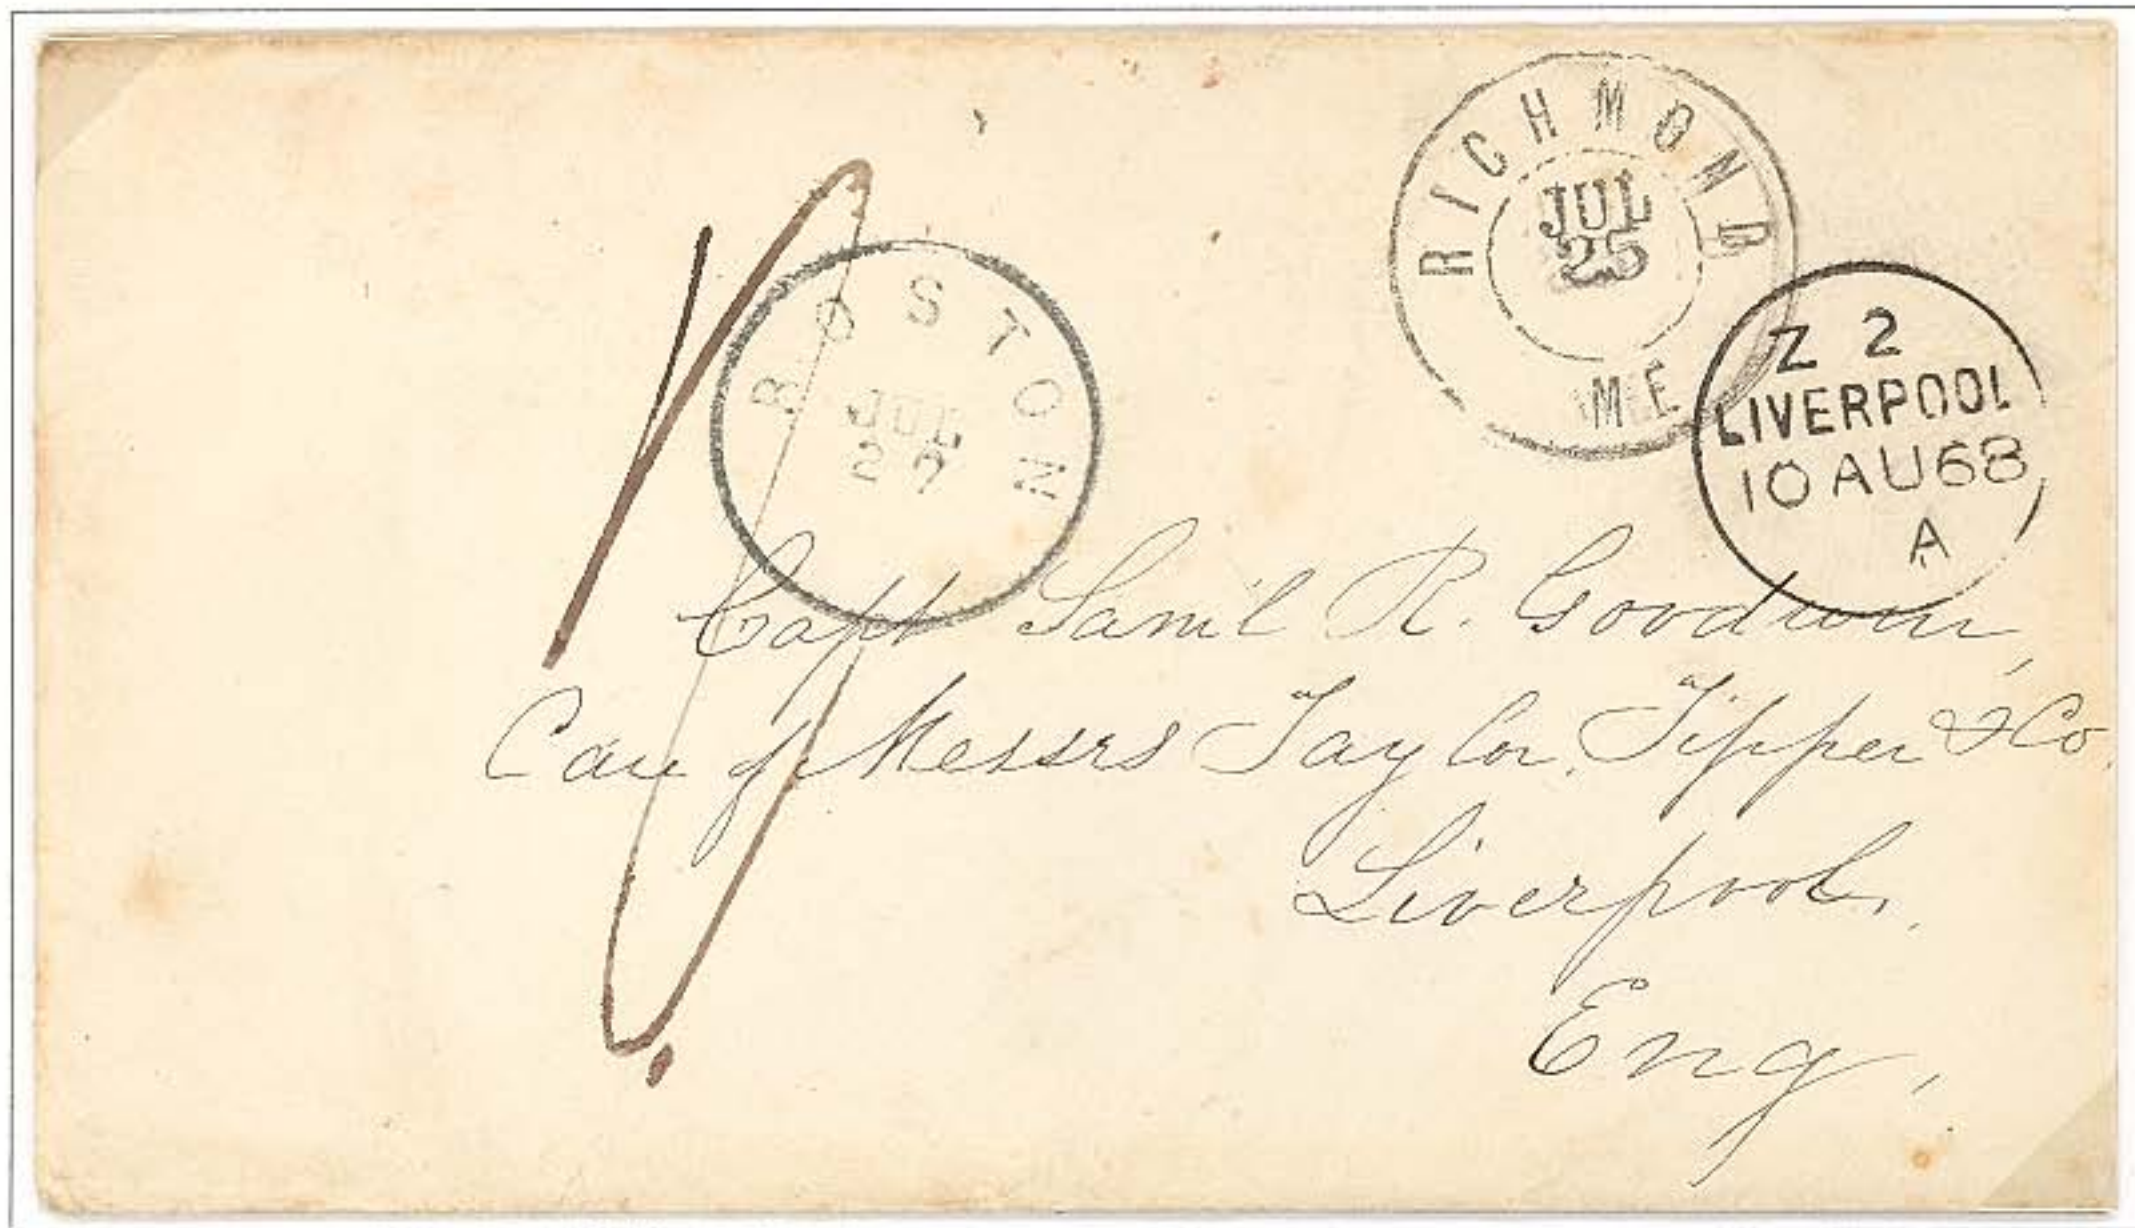 RICHMOND
JUL
25
ME
BOSTON
JUL
27
Z 2
LIVERPOOL
10 AU 68
A
Capt Saml R. Goodwin,
Care of Messrs Taylor, Tipper & Co.
Liverpool,
Eng,